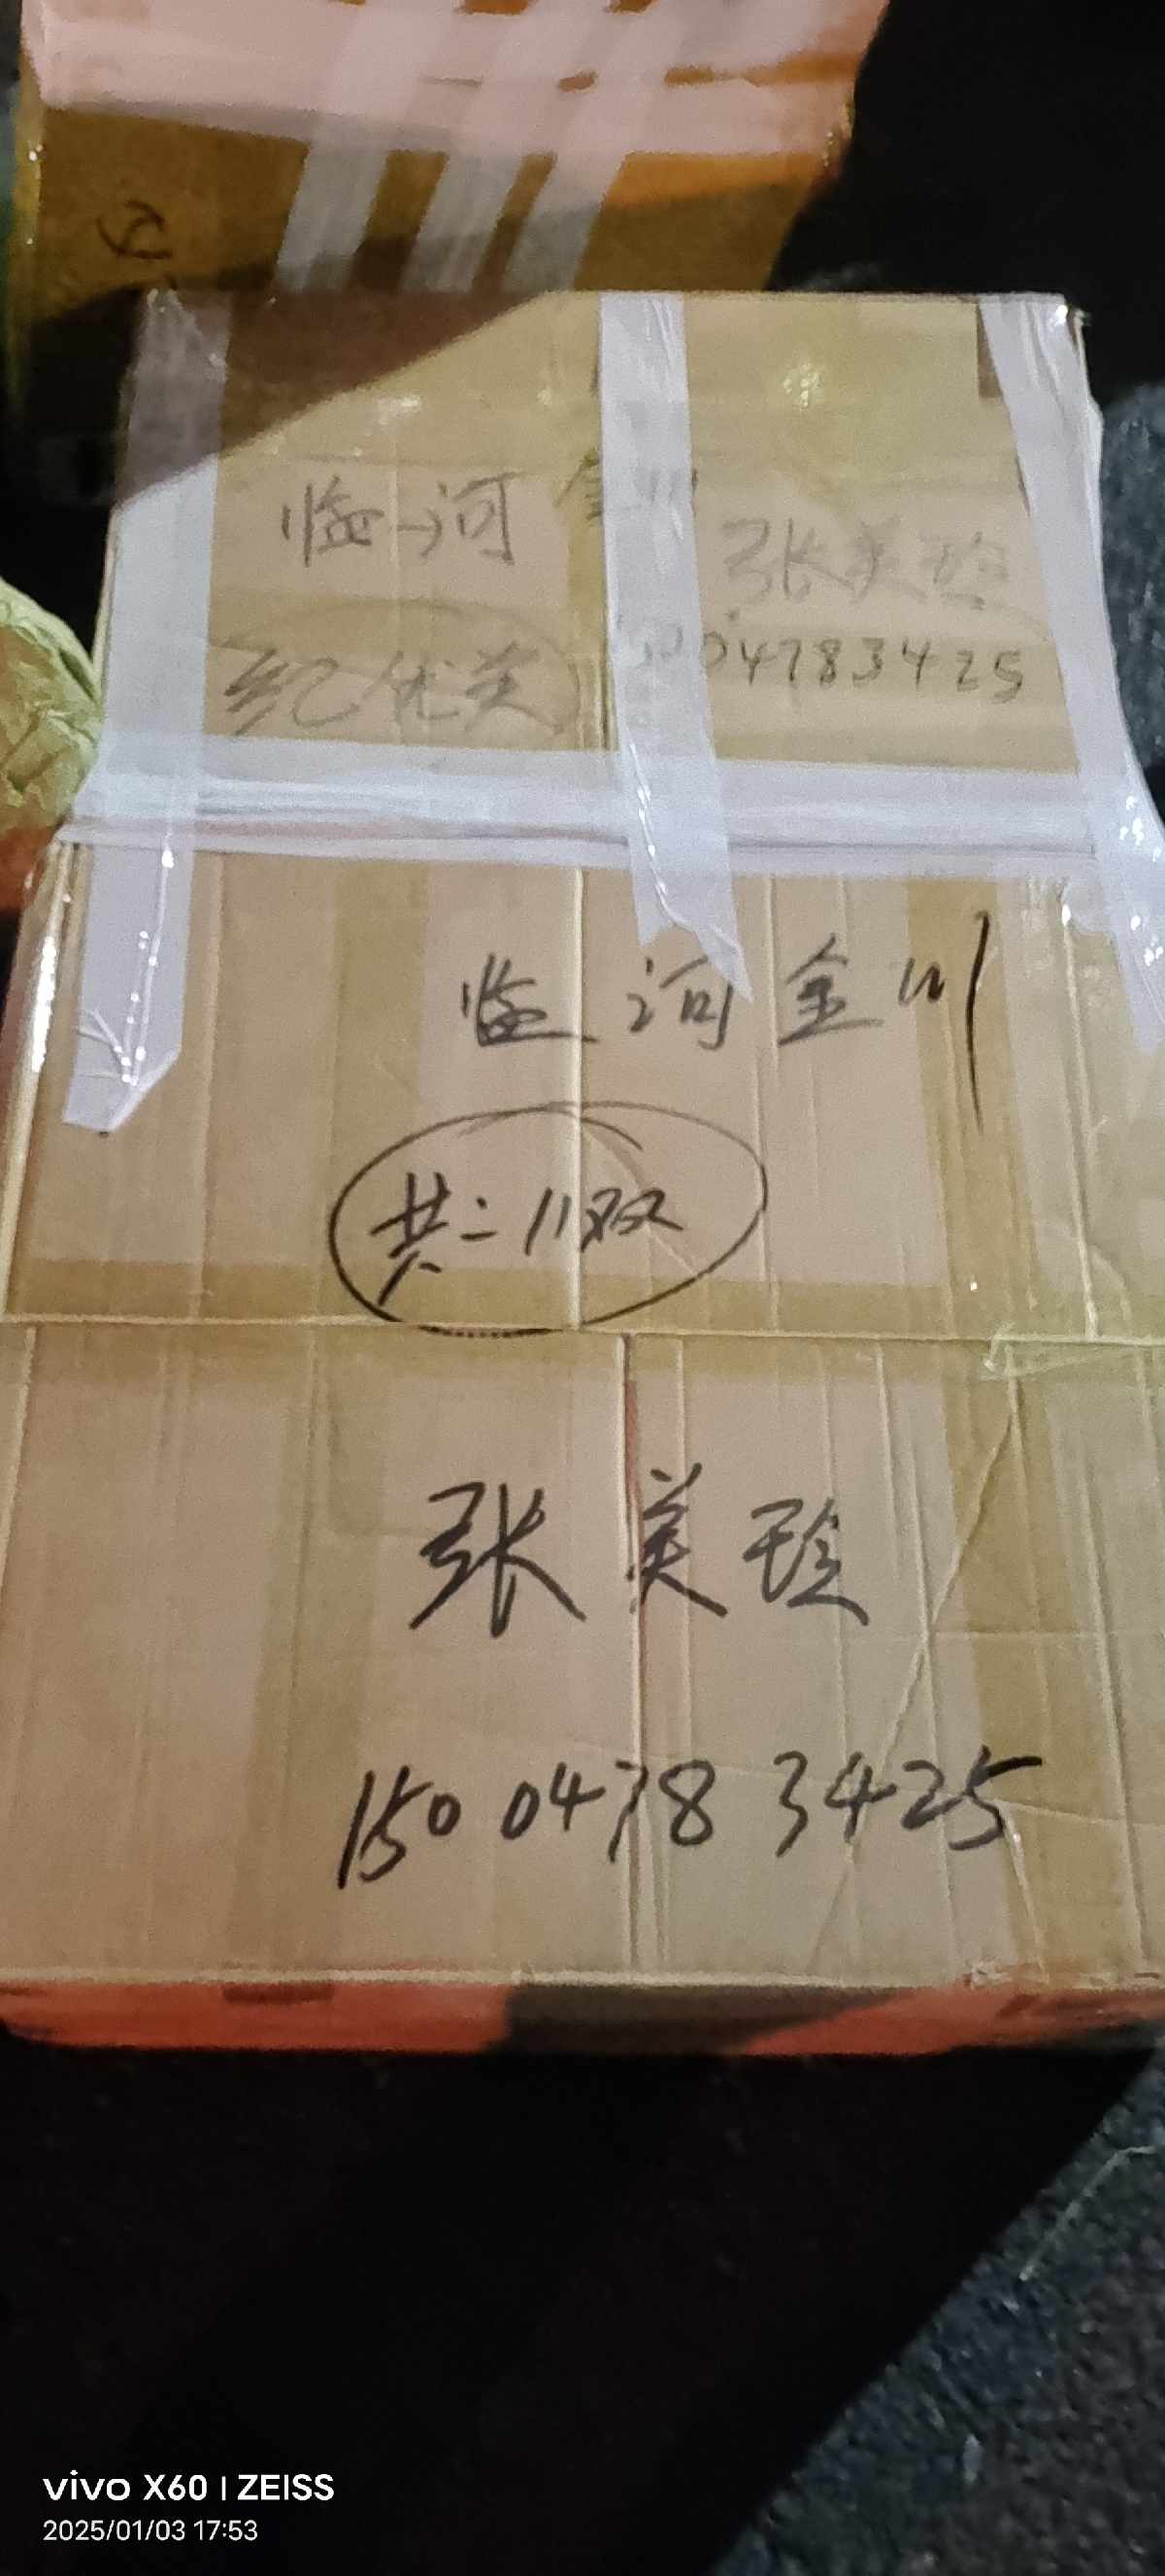 临河金川
张美玲
纪优美
150 0478 3425
临河金川
共二11双
张美玲
150 0478 3425
vivo X60 | ZEISS
2025/01/03 17:53